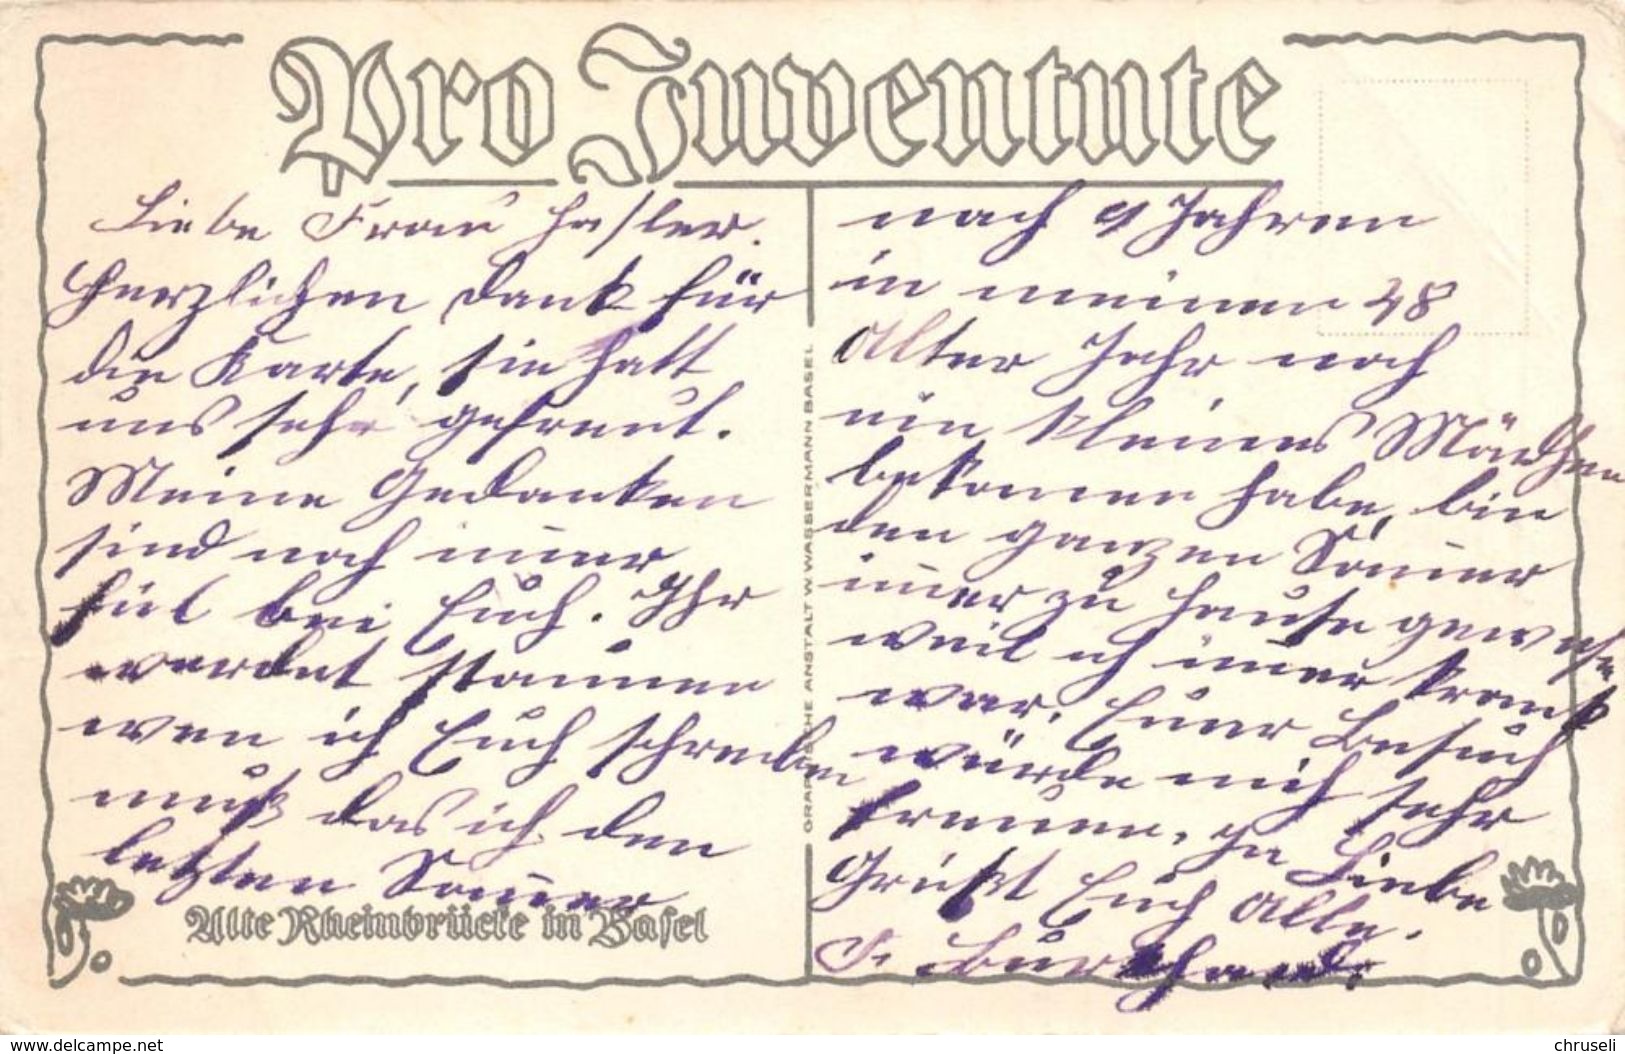 Pro Juventute
Liebe Frau Hasler.
Herzlichen Dank für
die Karte, sie hatt
uns sehr gefreut.
Meine Gedanken
sind noch imer
fiel bei Euch. Ihr
werdet staunen
wen ich Euch schreiben
muß das ich den
letzten Somer
Alte Rheinbrücke in Basel
GRAPHISCHE ANSTALT W. WASSERMANN BASEL
nach 9 Jahren
in meinen 48
Alter Jahr noch
ein kleines Mädchen
bekomen habe, bin
den ganzen Somer
imer zu Hause gewesen
weil ich imer krank
war. Euer Besuch
würde mich sehr
freuen. In Liebe
Grüßt Euch Alle.
F. Burkhard.
www.delcampe.net
chruseli